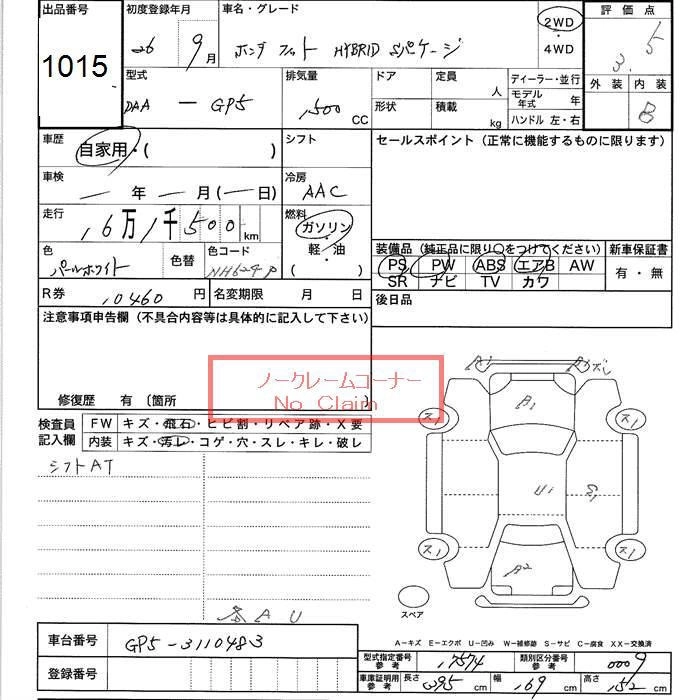 出品番号 初度登録年月 車名・グレード 2WD 評価点
1015 26 9月 ホンダ フィット HYBRID Sパケージ ・ 4WD 3.5
型式 排気量 ドア 定員 人 ディーラー・並行 外装 内装
DAA — GP5 1,500 CC 形状 積載 kg モデル年式 年 B
ハンドル 左・右
車歴 自家用・( ) シフト セールスポイント（正常に機能するものに限ります）
車検 — 年 — 月(— 日) 冷房 AAC
走行 16万1千500km 燃料 ガソリン・軽・油 ( )
装備品（純正品に限り○をつけてください） 新車保証書
色 パールホワイト 色替 色コード NH624P PS PW ABS エアB AW 有・無
SR ナビ TV カワ
R券 10460円 名変期限 月 日 後日品
注意事項申告欄（不具合内容等は具体的に記入して下さい）
ノークレームコーナー
No Claim
修復歴 有 〔箇所 〕
検査員 FW キズ・飛石・ヒビ割・リペア跡・X要
記入欄 内装 キズ・汚レ・コゲ・穴・スレ・キレ・破レ
シフトAT
A1 A1
A1
ス1 ス1
U1
ス1 ス1
A2
スペア
A U
A−キズ E−エクボ U−凹み W−補修跡 S−サビ C−腐食 XX−交換済
車台番号 GP5-3110483
型式指定番号 参考 17574 類別区分番号 参考 0009
登録番号
車庫証明用 参考 長さ 395 cm 幅 169 cm 高さ 152 cm